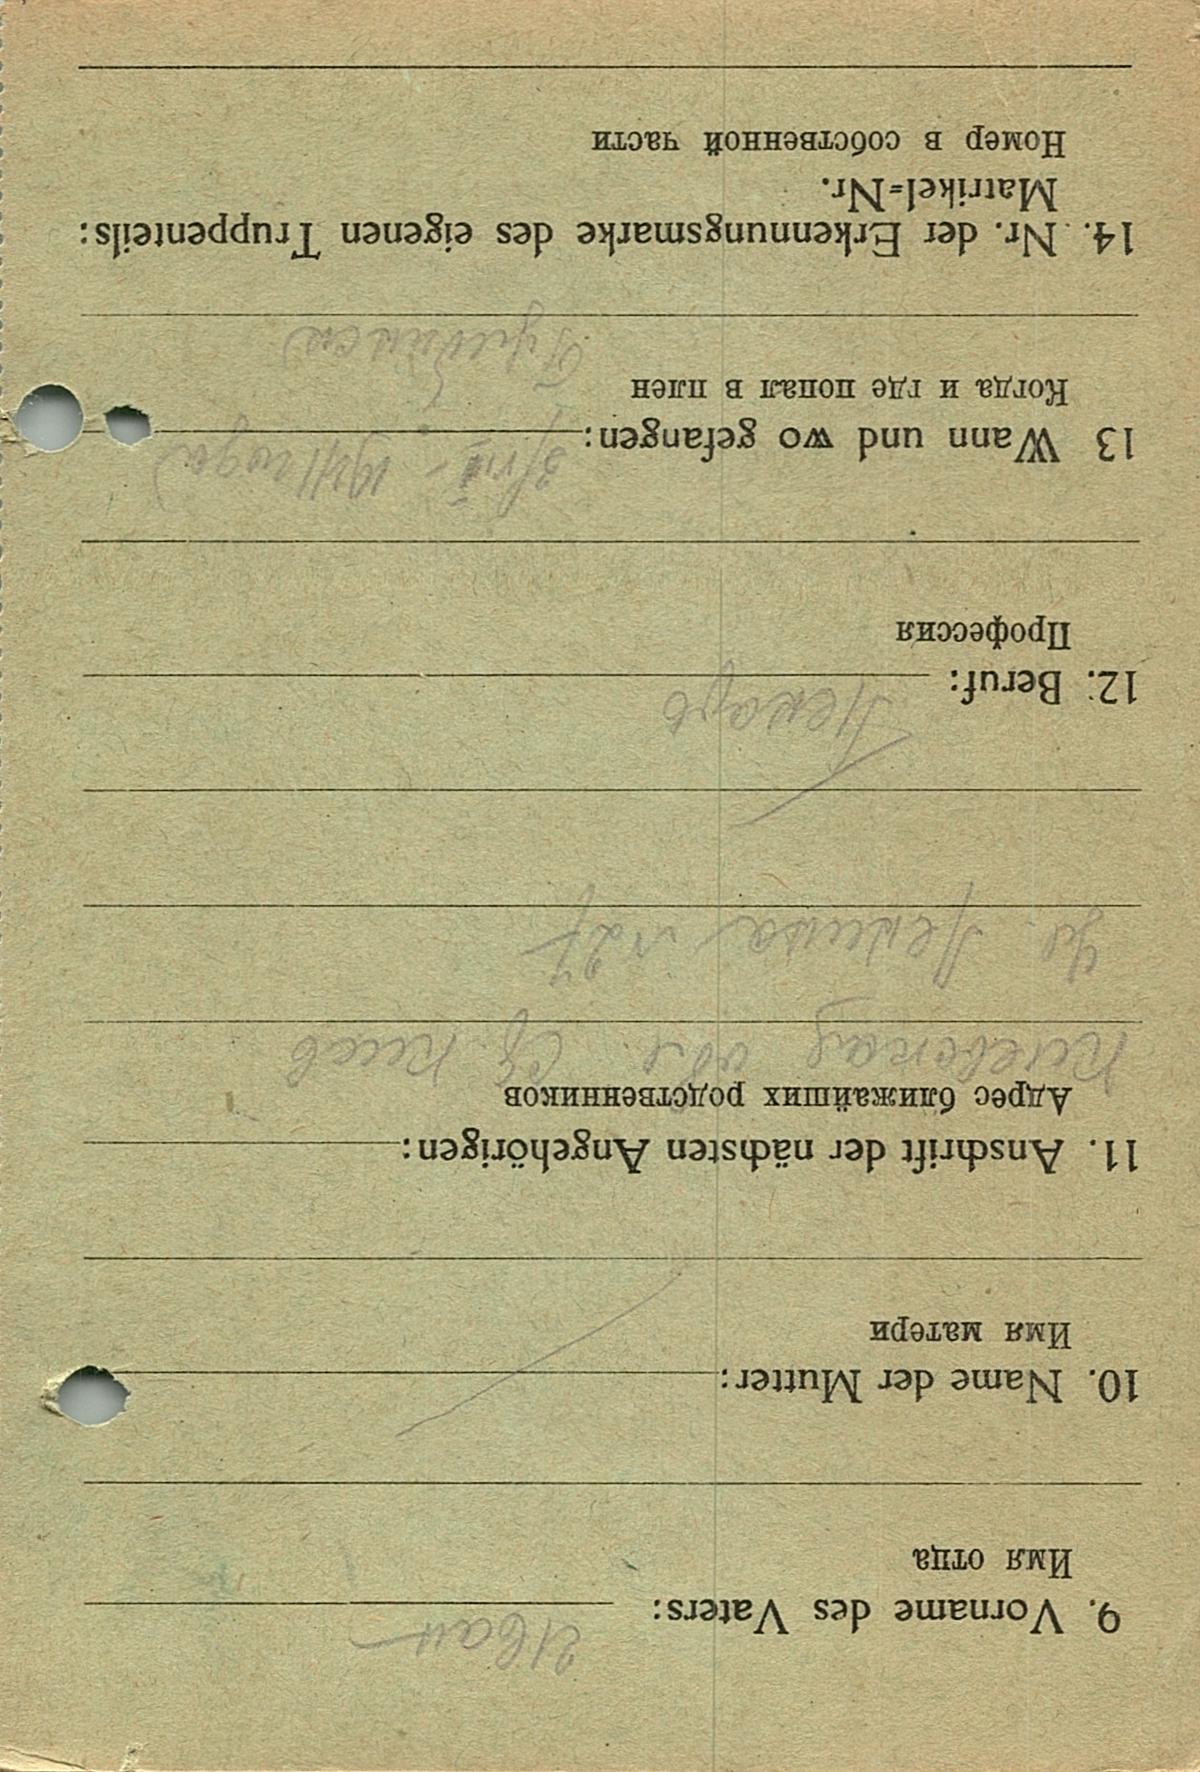 9. Vorname des Vaters: Иван
Имя отца
10. Name der Mutter:
Имя матери
11. Anschrift der nächsten Angehörigen:
Адрес ближайших родственников
Киевская обл. Киев
Ул. Ленина № 27
12. Beruf: Пекарь
Профессия
13 Wann und wo gefangen: 1941 года
Когда и где попал в плен
14. Nr. der Erkennungsmarke des eigenen Truppenteils:
Matrikel=Nr.
Номер в собственной части